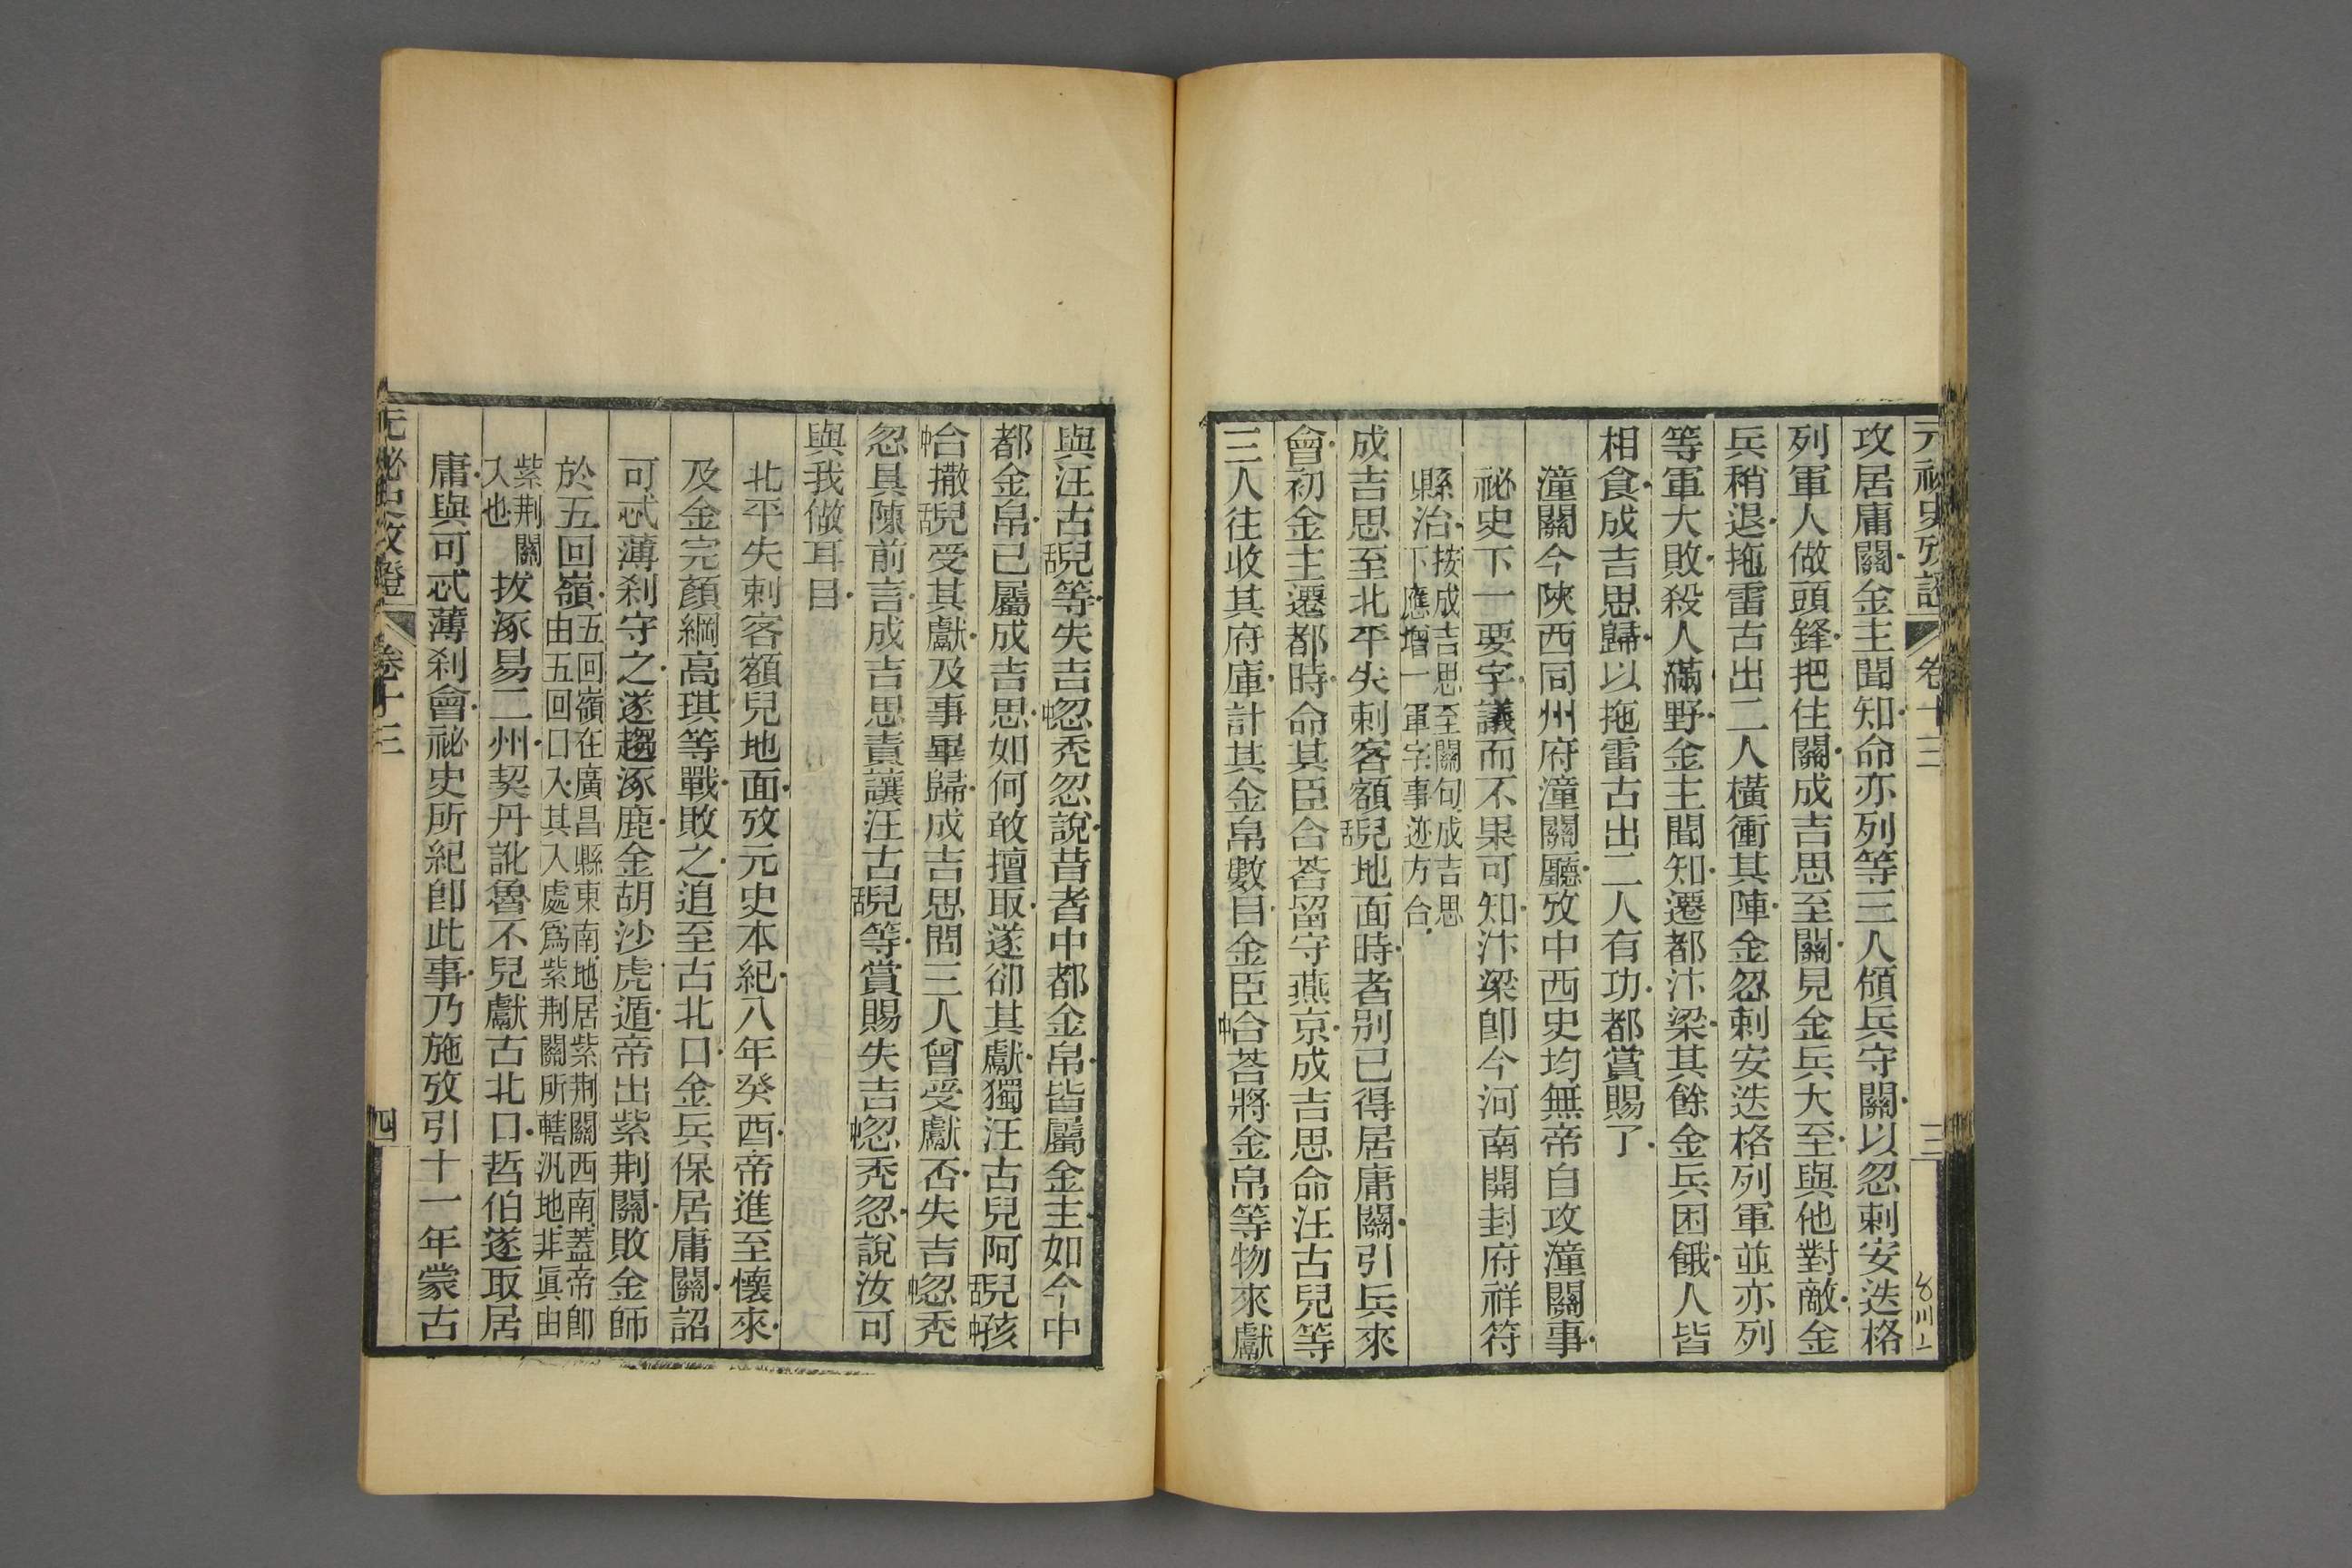 元祕史攷證 卷十三 三
攻居庸關金主聞知命亦列等三人領兵守關以忽剌安迭格
列軍人做頭鋒把住關成吉思至關見金兵大至與他對敵金
兵稍退拖雷古出二人橫衝其陣金忽剌安迭格列軍並亦列
等軍大敗殺人滿野金主聞知遷都汴梁其餘金兵困餓人皆
相食成吉思歸以拖雷古出二人有功都賞賜了
潼關今陝西同州府潼關廳攷中西史均無帝自攻潼關事
祕史下一要字議而不果可知汴梁卽今河南開封府祥符
縣治按成吉思至關句成吉思
下應增一軍字事迹方合
成吉思至北平失剌客額舌兒地面時者別已得居庸關引兵來
會初金主遷都時命其臣合荅留守燕京成吉思命汪古兒等
三人往收其府庫計其金帛數目金臣中合荅將金帛等物來獻
與汪古舌兒等失吉中忽禿忽說昔者中都金帛皆屬金主如今中
都金帛已屬成吉思如何敢擅取遂卻其獻獨汪古兒阿舌兒中孩
中合撒舌兒受其獻及事畢歸成吉思問三人曾受獻否失吉中忽禿
忽具陳前言成吉思責讓汪古舌兒等賞賜失吉中忽禿忽說汝可
與我做耳目
北平失剌客額兒地面攷元史本紀八年癸酉帝進至懷來
及金完顏綱高琪等戰敗之追至古北口金兵保居庸關詔
可忒薄刹守之遂趨涿鹿金胡沙虎遁帝出紫荆關敗金師
於五回嶺五回嶺在廣昌縣東南地居紫荆關西南蓋帝卽
由五回口入其入處爲紫荆關所轄汛地非眞由
紫荆關
入也拔涿易二州契丹訛魯不兒獻古北口哲伯遂取居
庸與可忒薄刹會祕史所紀卽此事乃施攷引十一年蒙古
元祕史攷證 卷十三 四